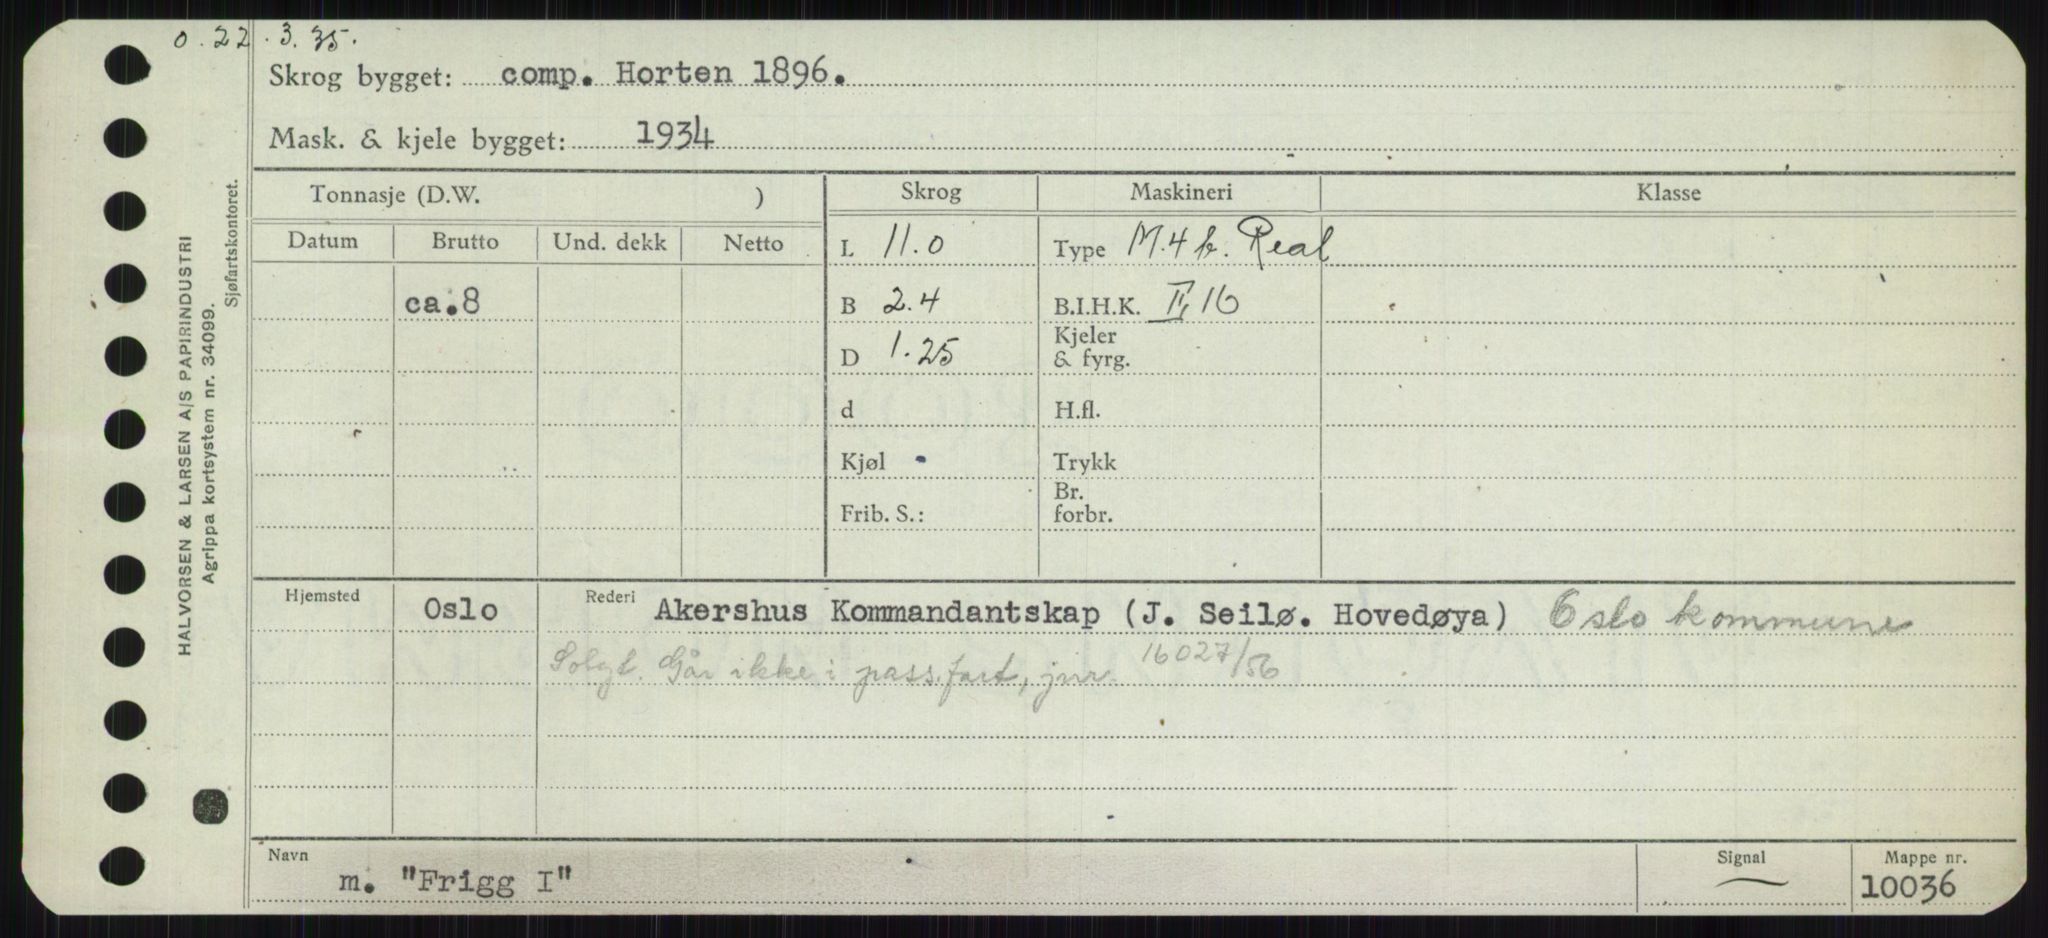 o. 22. 3. 35.
Skrog bygget: comp. Horten 1896.
Mask. & kjele bygget: 1934
Tonnasje (D.W. ) Skrog Maskineri Klasse
Datum Brutto Und. dekk Netto
L 11.0 Type M. 4 h. Real
ca.8 B 2.4 B.I.H.K. II, 16
D 1.25 Kjeler & fyrg.
d H.fl.
Kjøl Trykk
Frib. S.: Br. forbr.
Hjemsted Oslo Rederi Akershus Kommandantskap (J. Seilø. Hovedøya) Oslo kommune
Solgt. Går ikke i pass.fart, jnr 16027/56
Navn Signal Mappe nr.
m. "Frigg I" 10036
HALVORSEN & LARSEN A/S PAPIRINDUSTRI
Agrippa kortsystem nr. 34099.
Sjøfartskontoret.